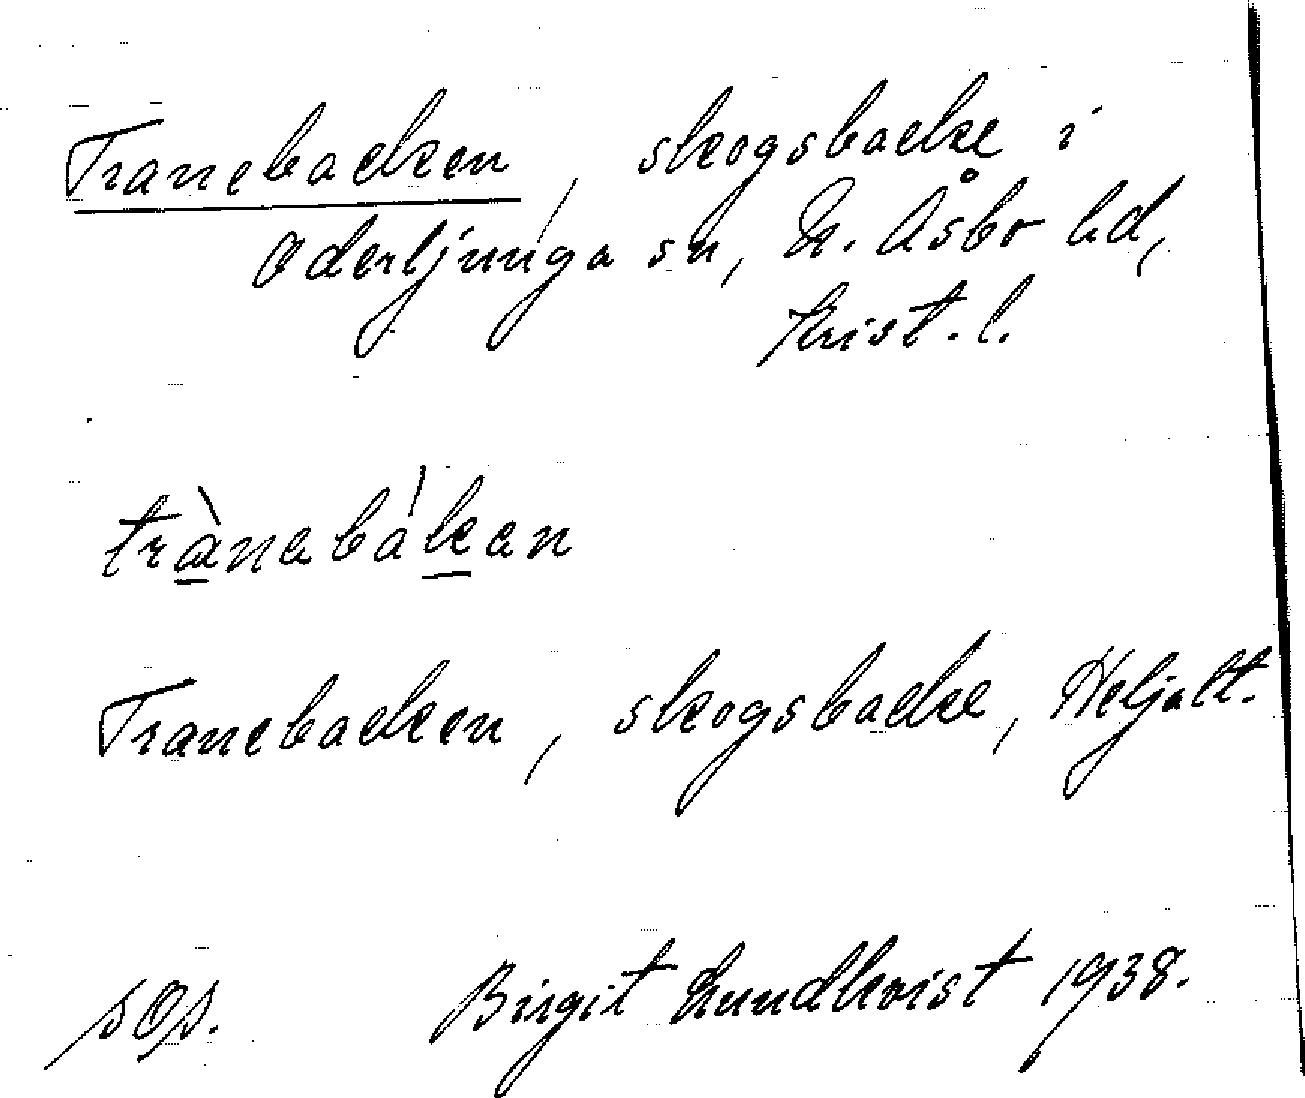 Tranebacken, skogsbacke i
Oderljunga sn, N. Åsbo hd,
Krist. l.
trànabákan
Tranebacken, skogsbacke, Heljalt.
Birgit Lundkvist 1938.